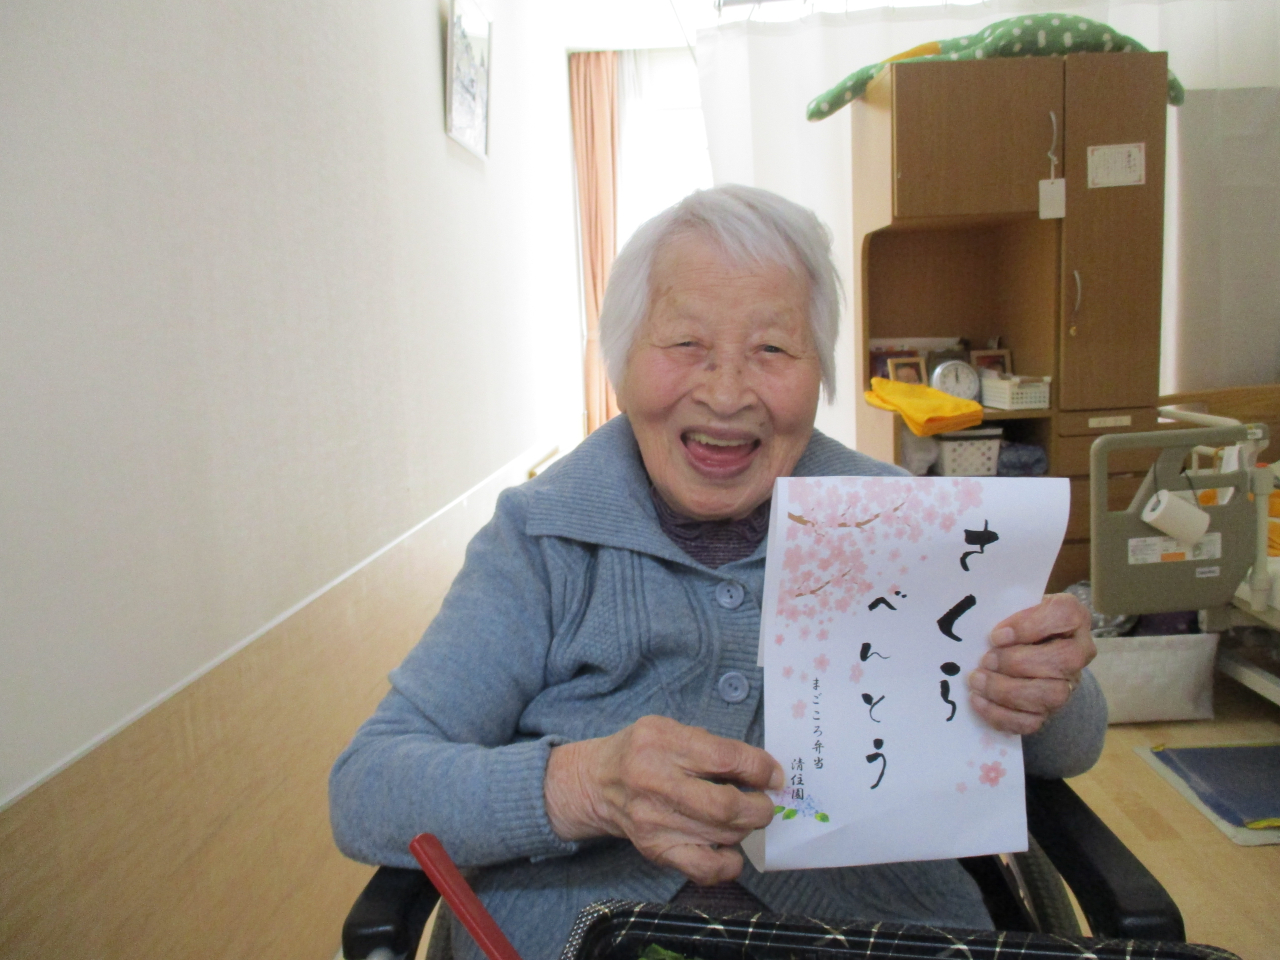 さくら
べんとう
まごころ弁当
清住園